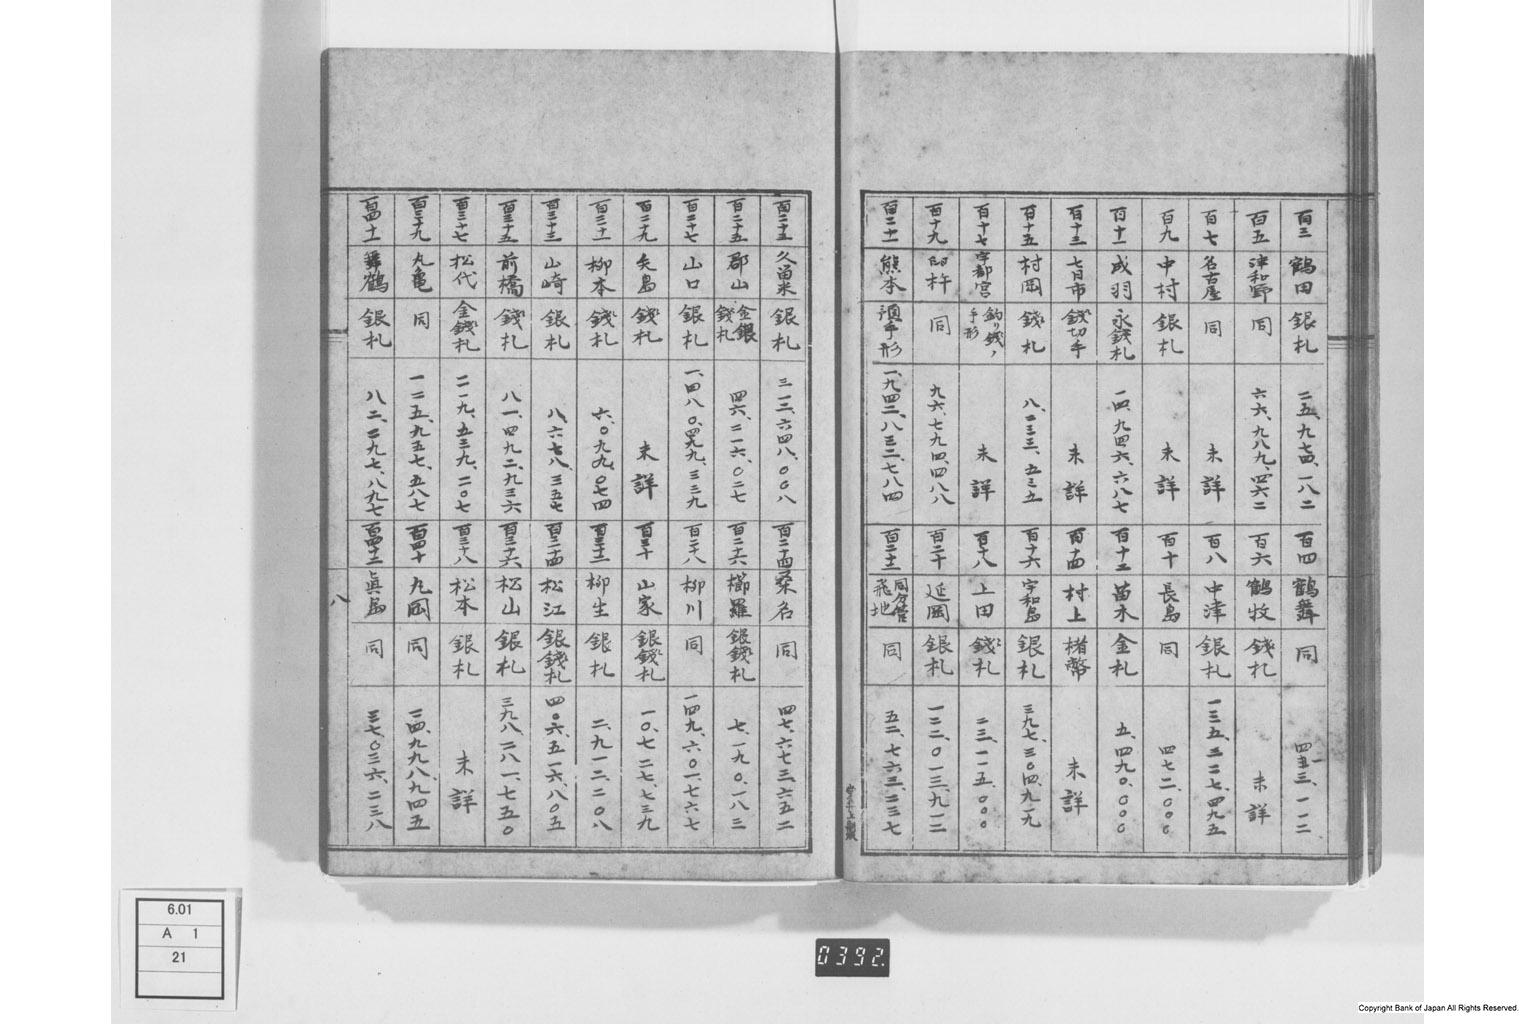 百三 鶴田 銀札 二五、九七四、一八二
百四 鶴舞 同
百五 津和野 同 六六、九八九、四六二
百六 鶴牧 銭札 未詳
百七 名古屋 同 未詳
百八 中津 銀札 一三五、三二七、四九五
百九 中村 銀札 未詳
百十 長島 同 四七二、〇〇〇
百十一 成羽 永銭札 一四、九四六、六八七
百十二 苗木 金札 五、四九〇、〇〇〇
百十三 七日市 銭切手 未詳
百十四 村上 楮幣 未詳
百十五 村岡 銭札 八、二三三、五三五
百十六 宇和島 銀札 三九七、三〇四、九一九
百十七 宇都宮 釣り銭ノ手形 未詳
百十八 上田 銭札 二三、一一五、〇〇〇
百十九 臼杵 同 九六、七九四、四八八
百二十 延岡 銀札 一二二、〇一三、九一二
百二十一 熊本 預手形 一、九四二、八三二、七八四
百二十二 同分管飛地 同 五二、七六三、二三七
百二十三 久留米 銀札 三一三、六四八、〇〇八
百二十四 桑名 同 四七、六七三、六五二
百二十五 郡山 金銀銭札 四六、二一六、〇二七
百二十六 櫛羅 銀銭札 七、一九〇、一八三
百二十七 山口 銀札 一、四八〇、四九九、三二九
百二十八 柳川 同 一四九、六〇一、七六七
百二十九 矢島 銭札 未詳
百三十 山家 銀銭札 一〇、七二七、七三九
百三十一 柳本 銭札 六、〇九九、〇七四
百三十二 柳生 銀札 二、九一二、二〇八
百三十三 山崎 銀札 八、六七八、三五七
百三十四 松江 銀銭札 四〇六、五一六、八〇五
百三十五 前橋 銭札 八一、四九二、九三六
百三十六 松山 銀札 三九八、二八一、七五〇
百三十七 松代 金銭札 二一九、五三九、二〇七
百三十八 松本 銀札 未詳
百三十九 丸亀 同 一二五、九五七、五八七
百四十 丸岡 同 二四、九九八、九四五
百四十一 舞鶴 銀札 八二、二九七、八九七
百四十二 真島 同 三七、〇三六、二三八
八
6.01
A 1
21
0392
Copyright Bank of Japan All Rights Reserved.